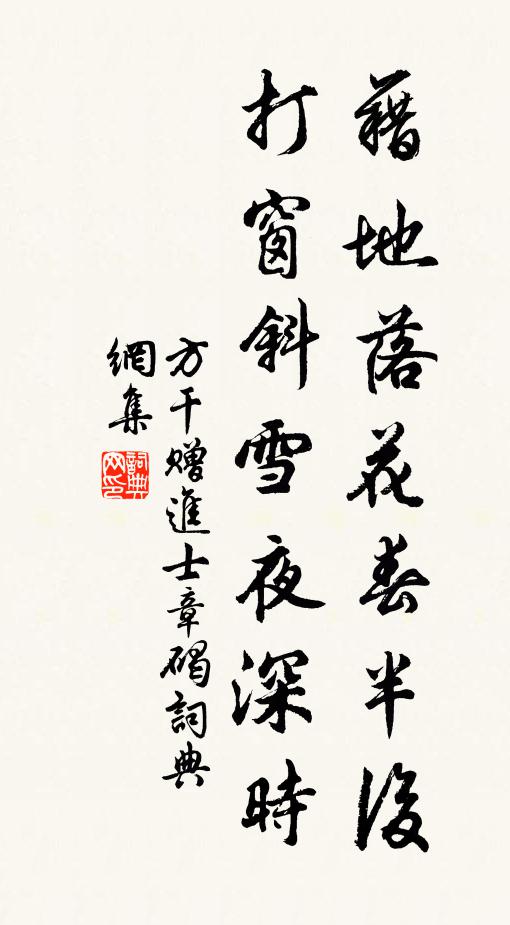 藉地落花春半後
打窗斜雪夜深時
方干贈進士章碣詞典
網集
詞典網印